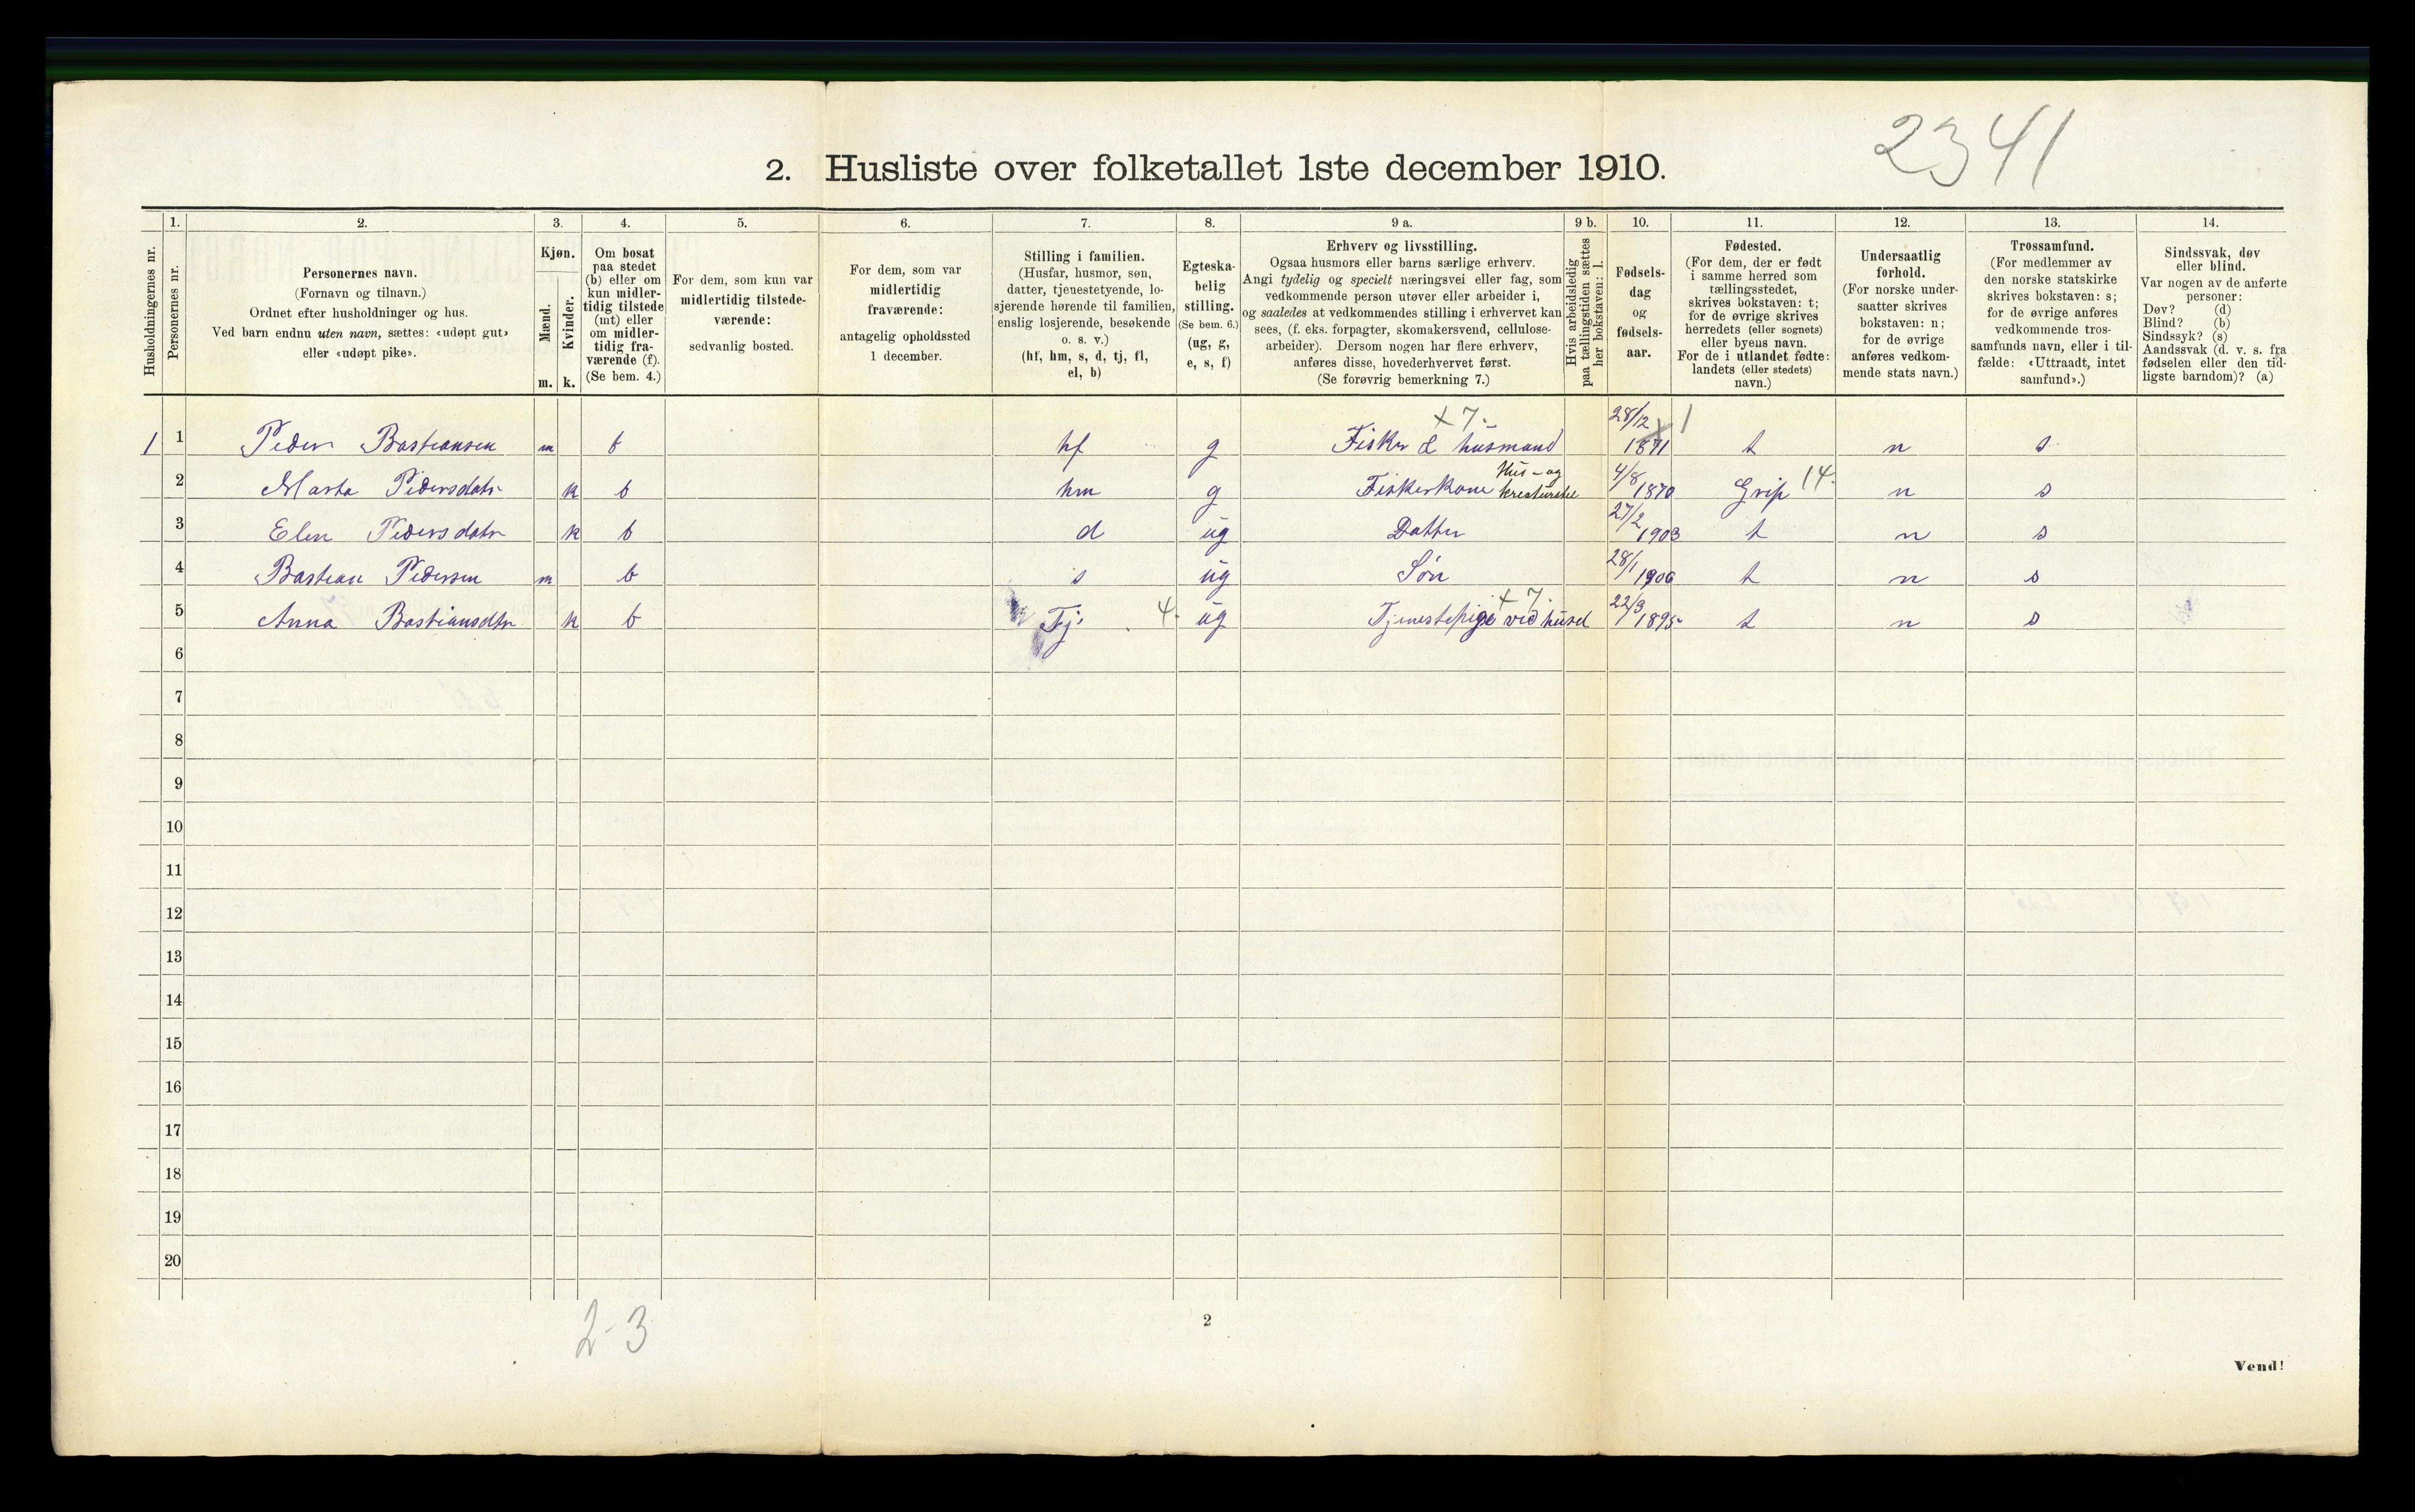 2341
2. Husliste over folketallet 1ste december 1910.
Husholdningernes nr.
1.
Personernes nr.
2.
Personernes navn.
(Fornavn og tilnavn.)
Ordnet efter husholdninger og hus.
Ved barn endnu uten navn, sættes: «udøpt gut»
eller «udøpt pike».
3.
Kjøn.
Mænd.
m.
Kvinder.
k.
4.
Om bosat
paa stedet
(b) eller om
kun midler-
tidig tilstede
(mt) eller
om midler-
tidig fra-
værende (f).
(Se bem. 4.)
5.
For dem, som kun var
midlertidig tilstede-
værende:
sedvanlig bosted.
6.
For dem, som var
midlertidig
fraværende:
antagelig opholdssted
1 december.
7.
Stilling i familien.
(Husfar, husmor, søn,
datter, tjenestetyende, lo-
sjerende hørende til familien,
enslig losjerende, besøkende
o. s. v.)
(hf, hm, s, d, tj, fl,
el, b)
8.
Egteska-
belig
stilling.
(Se bem. 6.)
(ug, g,
e, s, f)
9 a.
Erhverv og livsstilling.
Ogsaa husmors eller barns særlige erhverv.
Angi tydelig og specielt næringsvei eller fag, som
vedkommende person utøver eller arbeider i,
og saaledes at vedkommendes stilling i erhvervet kan
sees, (f. eks. forpagter, skomakersvend, cellulose-
arbeider). Dersom nogen har flere erhverv,
anføres disse, hovederhvervet først.
(Se forøvrig bemerkning 7.)
9 b.
Hvis arbeidsledig
paa tællingstiden sættes
her bokstaven: l.
10.
Fødsels-
dag
og
fødsels-
aar.
11.
Fødested.
(For dem, der er født
i samme herred som
tællingsstedet,
skrives bokstaven: t;
for de øvrige skrives
herredets (eller sognets)
eller byens navn.
For de i utlandet fødte:
landets (eller stedets)
navn.)
12.
Undersaatlig
forhold.
(For norske under-
saatter skrives
bokstaven: n;
for de øvrige
anføres vedkom-
mende stats navn.)
13.
Trossamfund.
(For medlemmer av
den norske statskirke
skrives bokstaven: s;
for de øvrige anføres
vedkommende tros-
samfunds navn, eller i til-
fælde: «Uttraadt, intet
samfund».)
14.
Sindssvak, døv
eller blind.
Var nogen av de anførte
personer:
Døv? (d)
Blind? (b)
Sindssyk? (s)
Aandssvak (d. v. s. fra
fødselen eller den tid-
ligste barndom)? (a)
+ 7. 28/12 1
1 1 Peder Bastiansen m b hf g Fisker & husmand 1871 t n s
2 Marta Pedersdatr k b hm g Fiskerkone Hus- og kreaturstel 4/8 1870 Grip 14. n s
3 Elen Pedersdatr k b d ug Datter 27/2 1903 t n s
4 Bastian Pedersen m b s ug Søn 28/1 1906 t n s
+ 7.
5 Anna Bastiansdtr k b Tj. 4. ug Tjenestepige ved huset 22/3 1895 t n s
6
7
8
9
10
11
12
13
14
15
16
17
18
19
20
2-3
2
Vend!